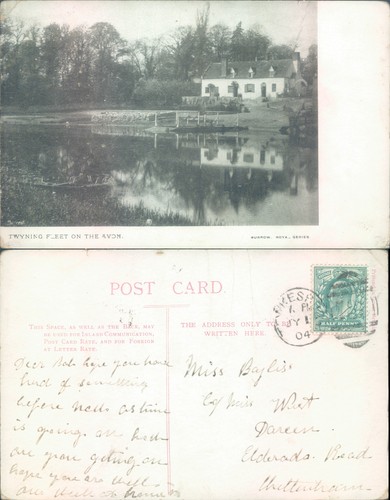 TWYNING FLEET ON THE AVON.
BURROW. ROYA. SERIES.
POST CARD.
THIS SPACE, AS WELL AS THE BACK, MAY
BE USED FOR INLAND COMMUNICATION,
POST CARD RATE, AND FOR FOREIGN
AT LETTER RATE.
THE ADDRESS ONLY TO BE
WRITTEN HERE.
HALF PENNY
KESB
JY 1
04
Dear Bob hope you have
heard of something
before now as time
is going on
are you getting on
hope you are well
Miss Bayliss
C/o Miss West
Eldorado Road
Cheltenham